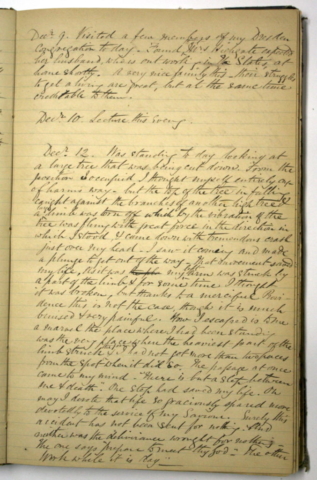 Decr 9. Visited a few members of my Dresden
Congregation to day. Found Mrs Highgate expected
her husband, who is out working in the States, at
home shortly. A very nice family this. Their struggles
to get a living are great, but at the same time
creditable to them.
Decr 10. Lecture this evening.
Decr 12. Was standing to day looking at
a large tree that was being cut down. From the
position I occupied I thought myself entirely out
of harms way. but the top of the tree in falling
caught against the branches of another high tree &
a limb was torn off which by the vibration of the
tree was flung with great force in the direction in
which I stood & came down with tremendous crash
just over my head. I saw it coming and made
a plunge to get out of the way. That movement saved
my life. As it was my arm was struck by
a part of the limb & for some time I thought
it was broken, but thanks to a merciful Provi-
dence this is not the case though it is much
bruised & very painful. How I escaped is to me
a marvel the place where I had been standing
was the very place where the heaviest part of the
limb struck & I had not got more than two paces
from the spot when it did so. The passage at once
came to my mind - There is but a step between
me & death. One step had saved my life. Oh
may I devote that life so graciously spared more
devotedly to the service of my Saviour. Surely this
accident has not been sent for nothing. And
neither was the deliverance wrought for nothing.
The one says prepare to meet thy God - The other
Work while it is day -